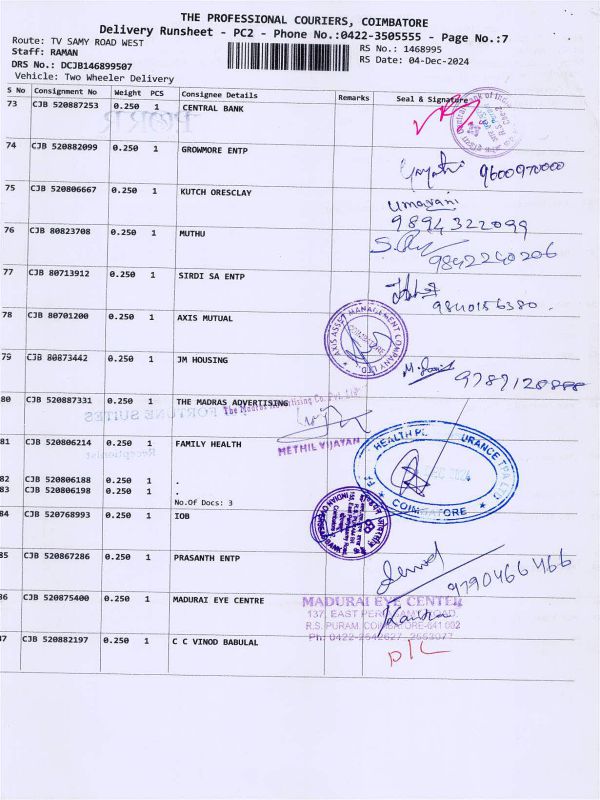 THE PROFESSIONAL COURIERS, COIMBATORE
Delivery Runsheet - PC2 - Phone No.:0422-3505555 - Page No.:7
Route: TV SAMY ROAD WEST
RS No.: 1468995
Staff: RAMAN
RS Date: 04-Dec-2024
DRS No.: DCJB146899507
Vehicle: Two Wheeler Delivery
S No Consignment No Weight PCS Consignee Details Remarks Seal & Signature
73 CJB 520887253 0.250 1 CENTRAL BANK
74 CJB 520882099 0.250 1 GROWMORE ENTP
Gayathri 9600970000
75 CJB 520806667 0.250 1 KUTCH ORESCLAY
Umavani
9894322099
76 CJB 80823708 0.250 1 MUTHU
9842240206
77 CJB 80713912 0.250 1 SIRDI SA ENTP
9840156380
78 CJB 80701200 0.250 1 AXIS MUTUAL
AXIS ASSET MANAGEMENT COMPANY LTD
79 CJB 80873442 0.250 1 JM HOUSING
80 CJB 520887331 0.250 1 THE MADRAS ADVERTISING
The Madras Advertising Co. Pvt. Ltd
METHIL VIJAYAN
FORTUNE SUITES
Receptionist
81 CJB 520806214 0.250 1 FAMILY HEALTH
COIMBATORE
82 CJB 520806188 0.250 1 .
83 CJB 520806198 0.250 1 .
No.Of Docs: 3
84 CJB 520768993 0.250 1 IOB
85 CJB 520867286 0.250 1 PRASANTH ENTP
9790466466
86 CJB 520875400 0.250 1 MADURAI EYE CENTRE
MADURAI EYE CENTER
137, EAST PERIASAMY ROAD,
R.S. PURAM, COIMBATORE-641 002
Ph: 0422-2542627, 2553077
87 CJB 520882197 0.250 1 C C VINOD BABULAL
D/L